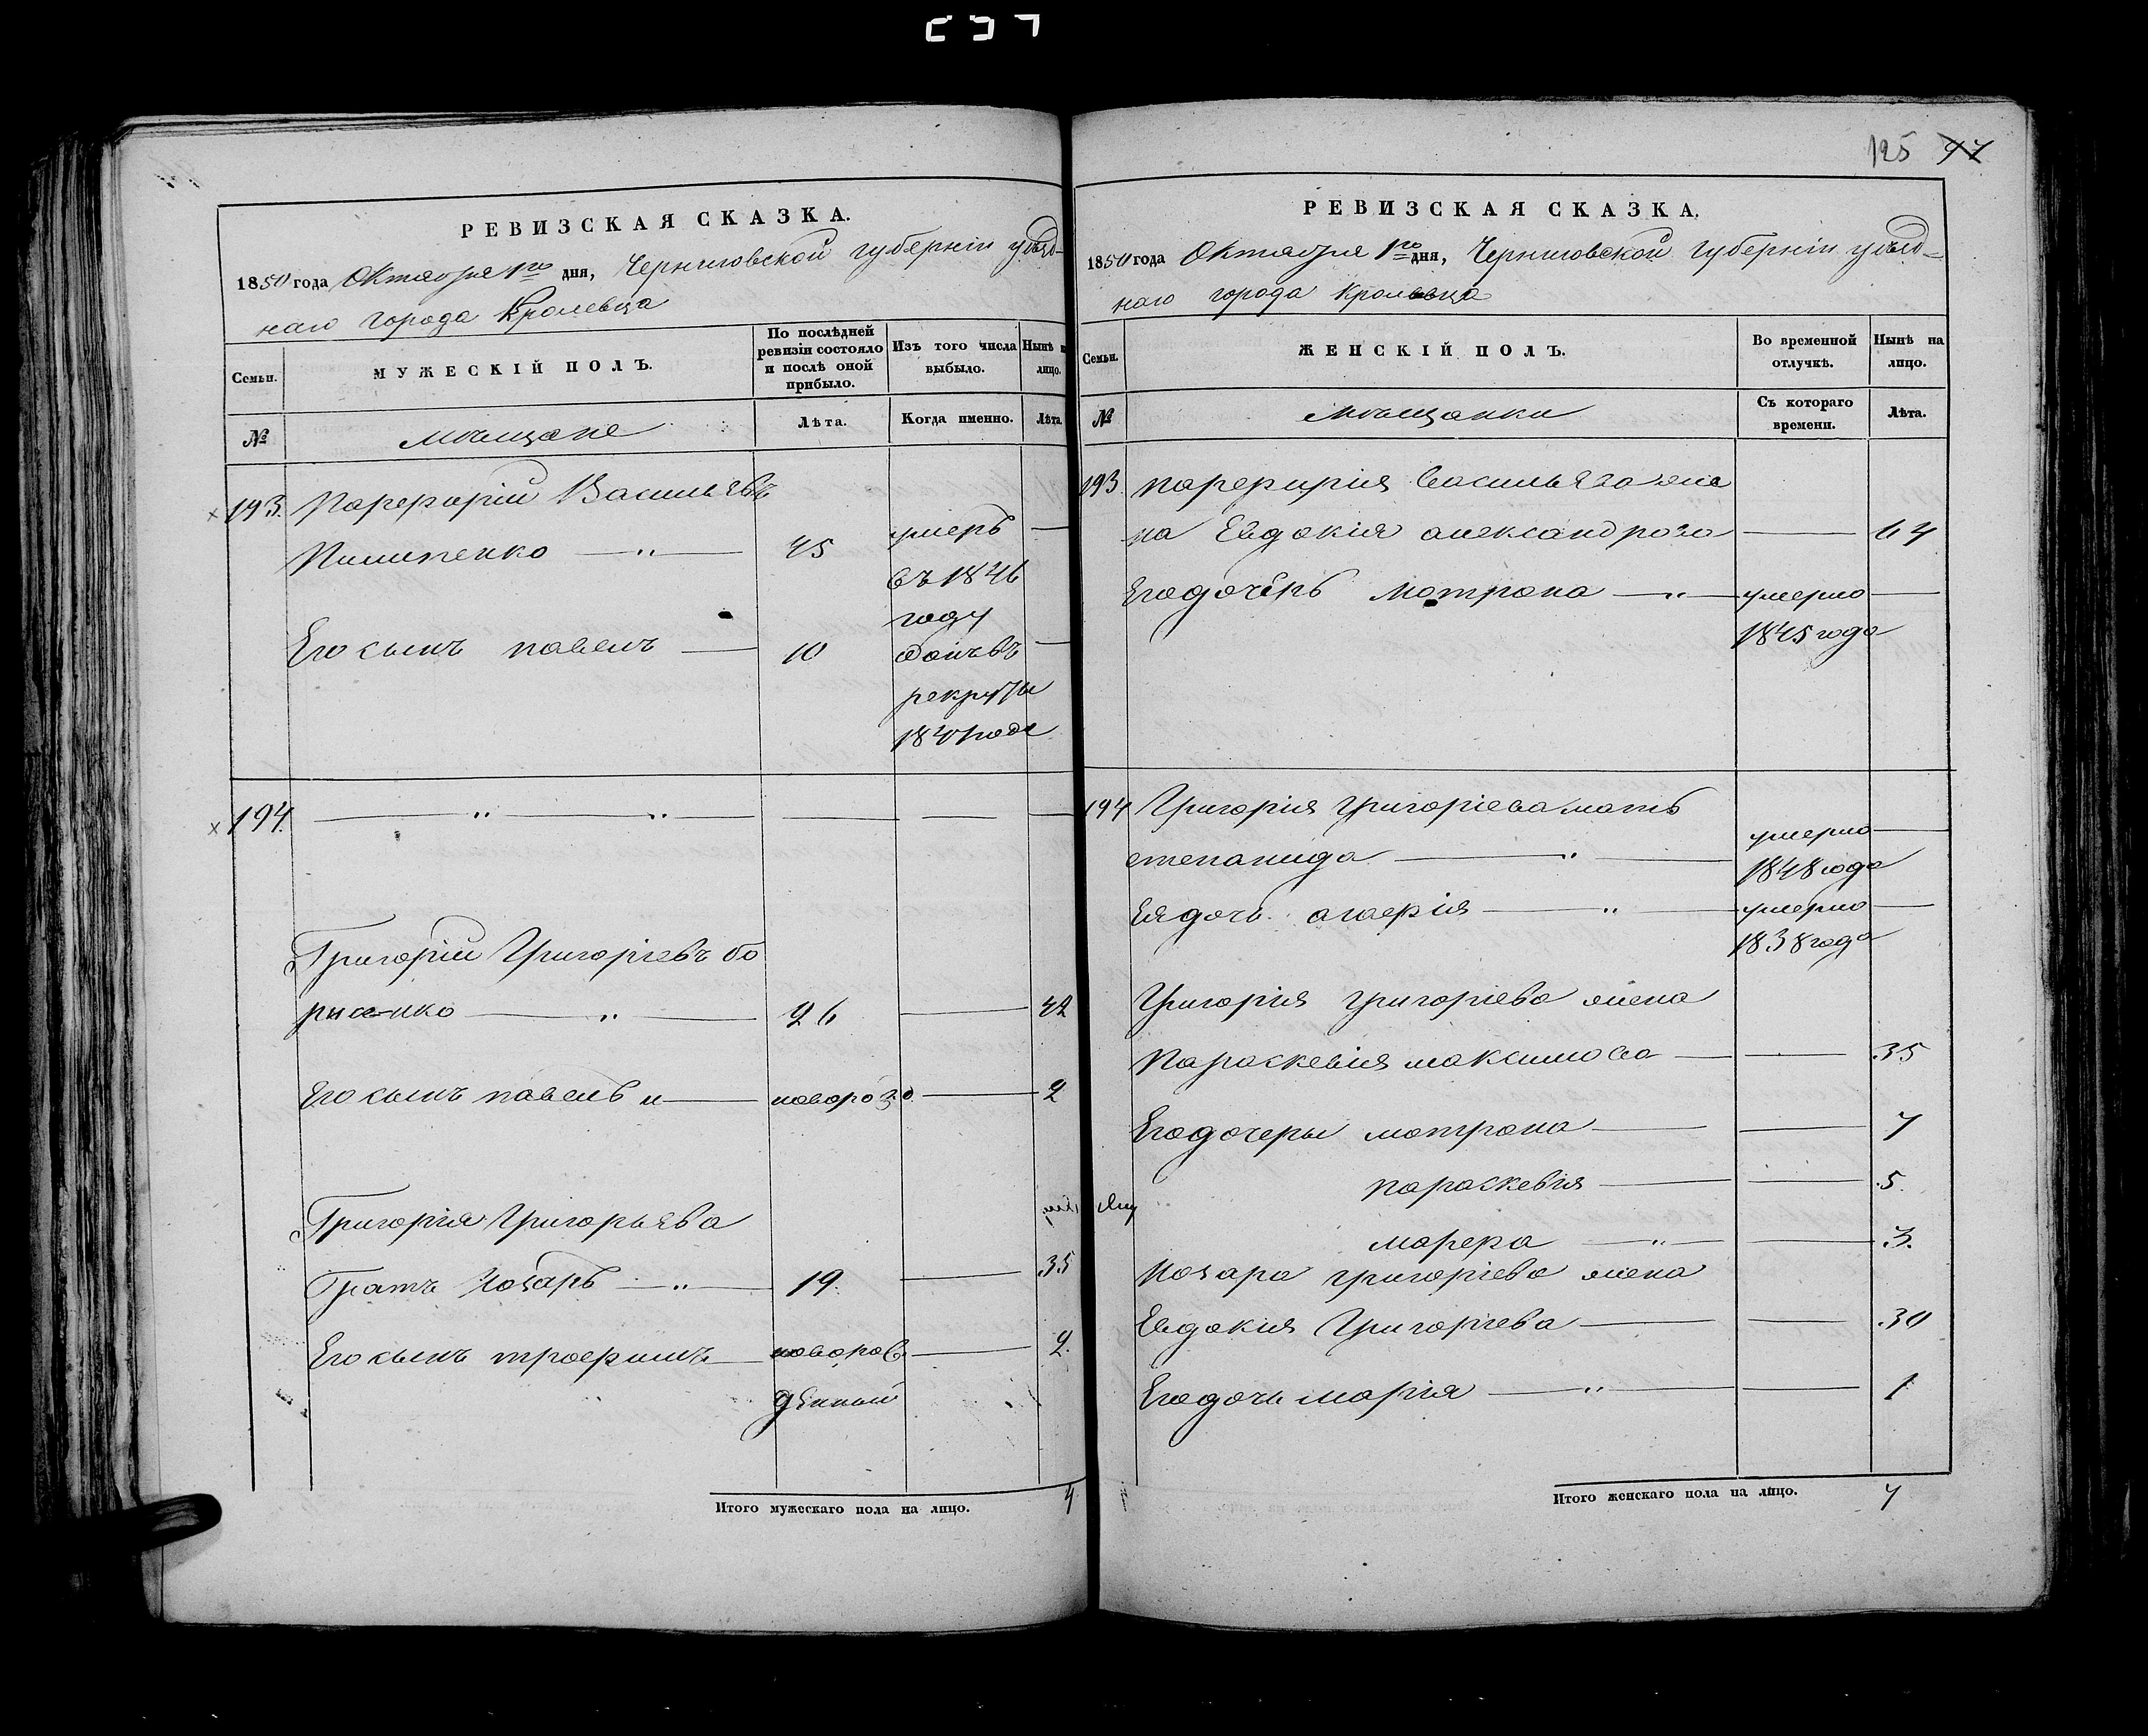 РЕВИЗСКАЯ СКАЗКА.
1850 года Октября 1го дня, Черниговской губерніи уѣзд-
наго города Кролевца
Семьи.
МУЖЕСКІЙ ПОЛЪ.
По послѣдней ревизіи состояло и послѣ оной прибыло.
Изъ того числа выбыло.
Нынѣ н лицо.
№
Мѣщане
Лѣта.
Когда именно.
Лѣта.
193. Парфирій Васильевъ
Пилипенко — 45 умеръ —
въ 1846
году
Его сынъ павелъ — 10 —
рекруты
194.
Григорій Григоріевъ бо
рисенко — 26 — 42
Его сынъ павелъ и — новорозд. — 2
Григорія Григорьева
братъ Назаръ — 19. — 35
Его сынъ трофимъ — новорож — 2.
денный
Итого мужескаго пола на лицо. 4
125 97
РЕВИЗСКАЯ СКАЗКА.
1850 года Октября 1го дня, Черниговской губерніи уѣзд-
наго города Кролевца
Семьи.
ЖЕНСКІЙ ПОЛЪ.
Во временной отлучкѣ.
Нынѣ на лицо.
№
Мѣщанки
Съ котораго времени.
Лѣта.
193. парфирія Васильева же
на Евдокія александрова — 64
Его дочерь Мотрона — умерла —
1845 года
194 Григорія григоріева мать
степанида — умерла —
1848 года
Ея дочь агафія — умерла —
1838 года
Григорія григоріева жена
Параскевія максимова — 35
Его дочеры мотрона — 7
параскевія — 5.
марфа — 3.
Назара григоріева жена
Евдокия Григоріева — 30
Его дочь марія — 1
Итого женскаго пола на лицо. 7